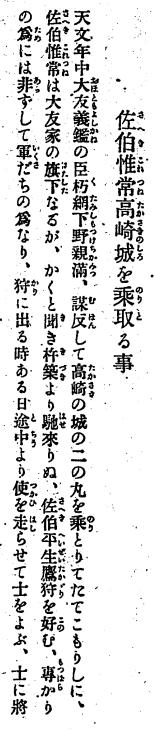 佐伯惟常高崎城を乘取る事
天文年中大友義鑑の臣朽網下野親滿、謀反して高崎の城の二の丸を乘とりてたてこもりしに、
佐伯惟常は大友家の旗下なるが、かくと聞き杵築より馳來りぬ、佐伯平生鷹狩を好む、專かり
の爲には非ずして軍だちの爲なり、狩に出る時ある日途中より使を走らせて士をよぶ、士に將